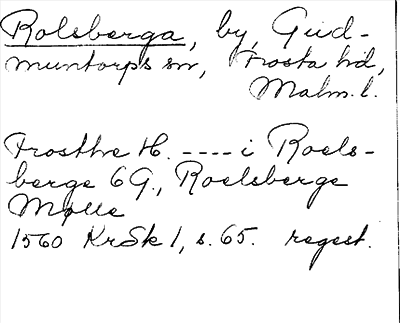 Rolsberga, by, Gud-
muntorps sn, Frosta hd,
Malm. l.
Frosthe H. ---- i Roels-
berge 6 G., Roelsberge
Mølle
1560 KrSk 1, s. 65. regest.